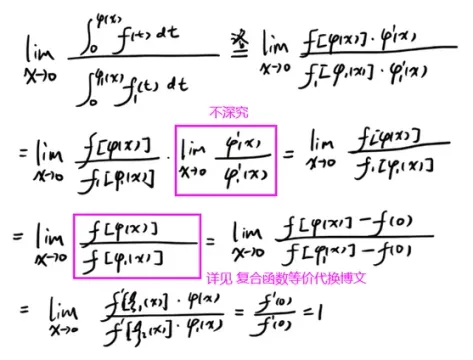 lim x→0 ∫₀^φ(x) f(t) dt / ∫₀^φ₁(x) f₁(t) dt 洛= lim x→0 f[φ(x)]·φ'(x) / f₁[φ₁(x)]·φ₁'(x)
不深究
= lim x→0 f[φ(x)] / f₁[φ₁(x)] · lim x→0 φ'(x) / φ₁'(x) = lim x→0 f[φ(x)] / f₁[φ₁(x)]
= lim x→0 f[φ(x)] / f[φ₁(x)] = lim x→0 f[φ(x)] − f(0) / f[φ₁(x)] − f(0)
详见 复合函数等价代换博文
= lim x→0 f'[ξ₁(x)]·φ(x) / f'[ξ₂(x)]·φ₁(x) = f'(0) / f'(0) = 1